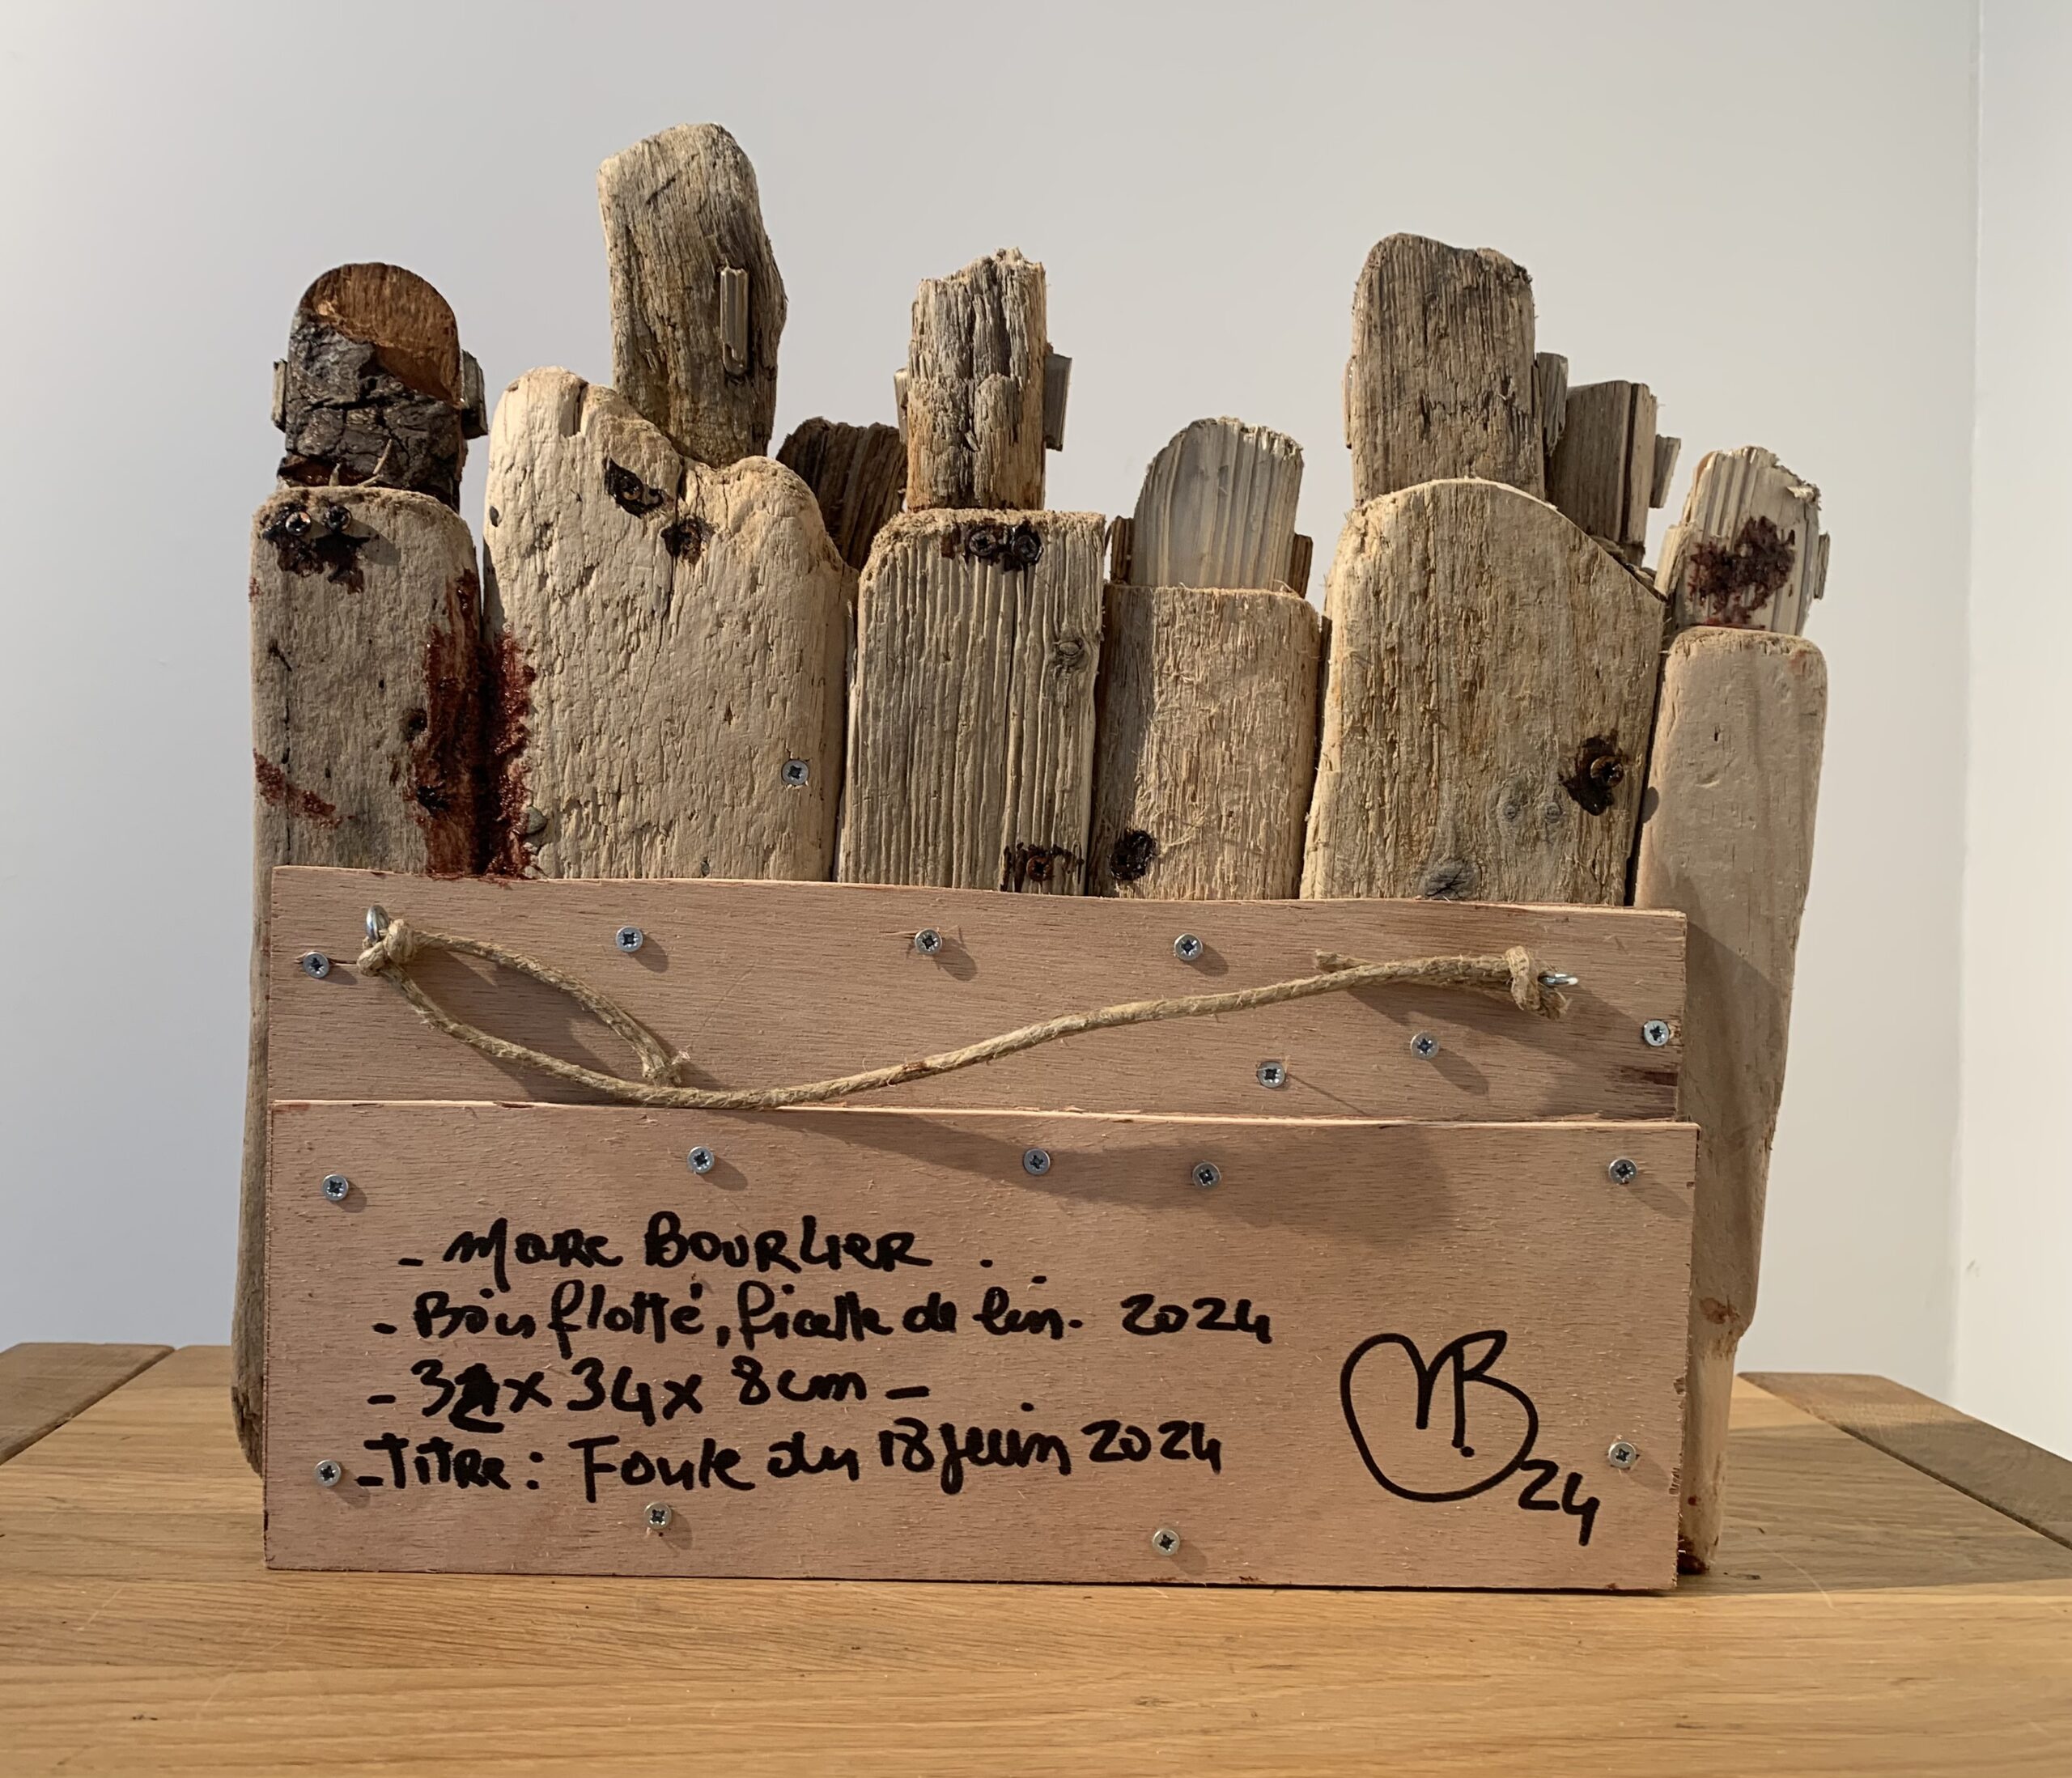 - Marc BOURLIER.
- Bois flotté, ficelle de lin. 2024
- 32 x 34 x 8 cm -
- Titre : Foule du 18 juin 2024
MB 24